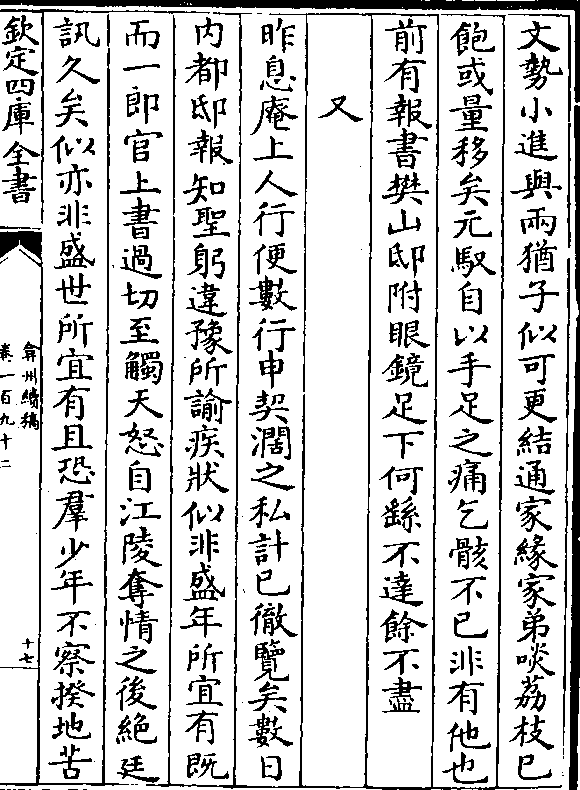 文勢小進與兩猶子似可更結通家緣家弟啖荔枝已
飽或量移矣元馭自以手足之痛乞骸不已非有他也
前有報書樊山邸附眼鏡足下何繇不達餘不盡
又
昨息庵上人行便數行申契濶之私計已徹覽矣數日
内都邸報知聖躬違豫所諭疾狀似非盛年所宜有既
而一郎官上書過切至觸天怒自江陵奪情之後絶廷
訊久矣似亦非盛世所宜有且恐羣少年不察揆地苦
欽定四庫全書
弇州續稿
卷一百九十二
十七